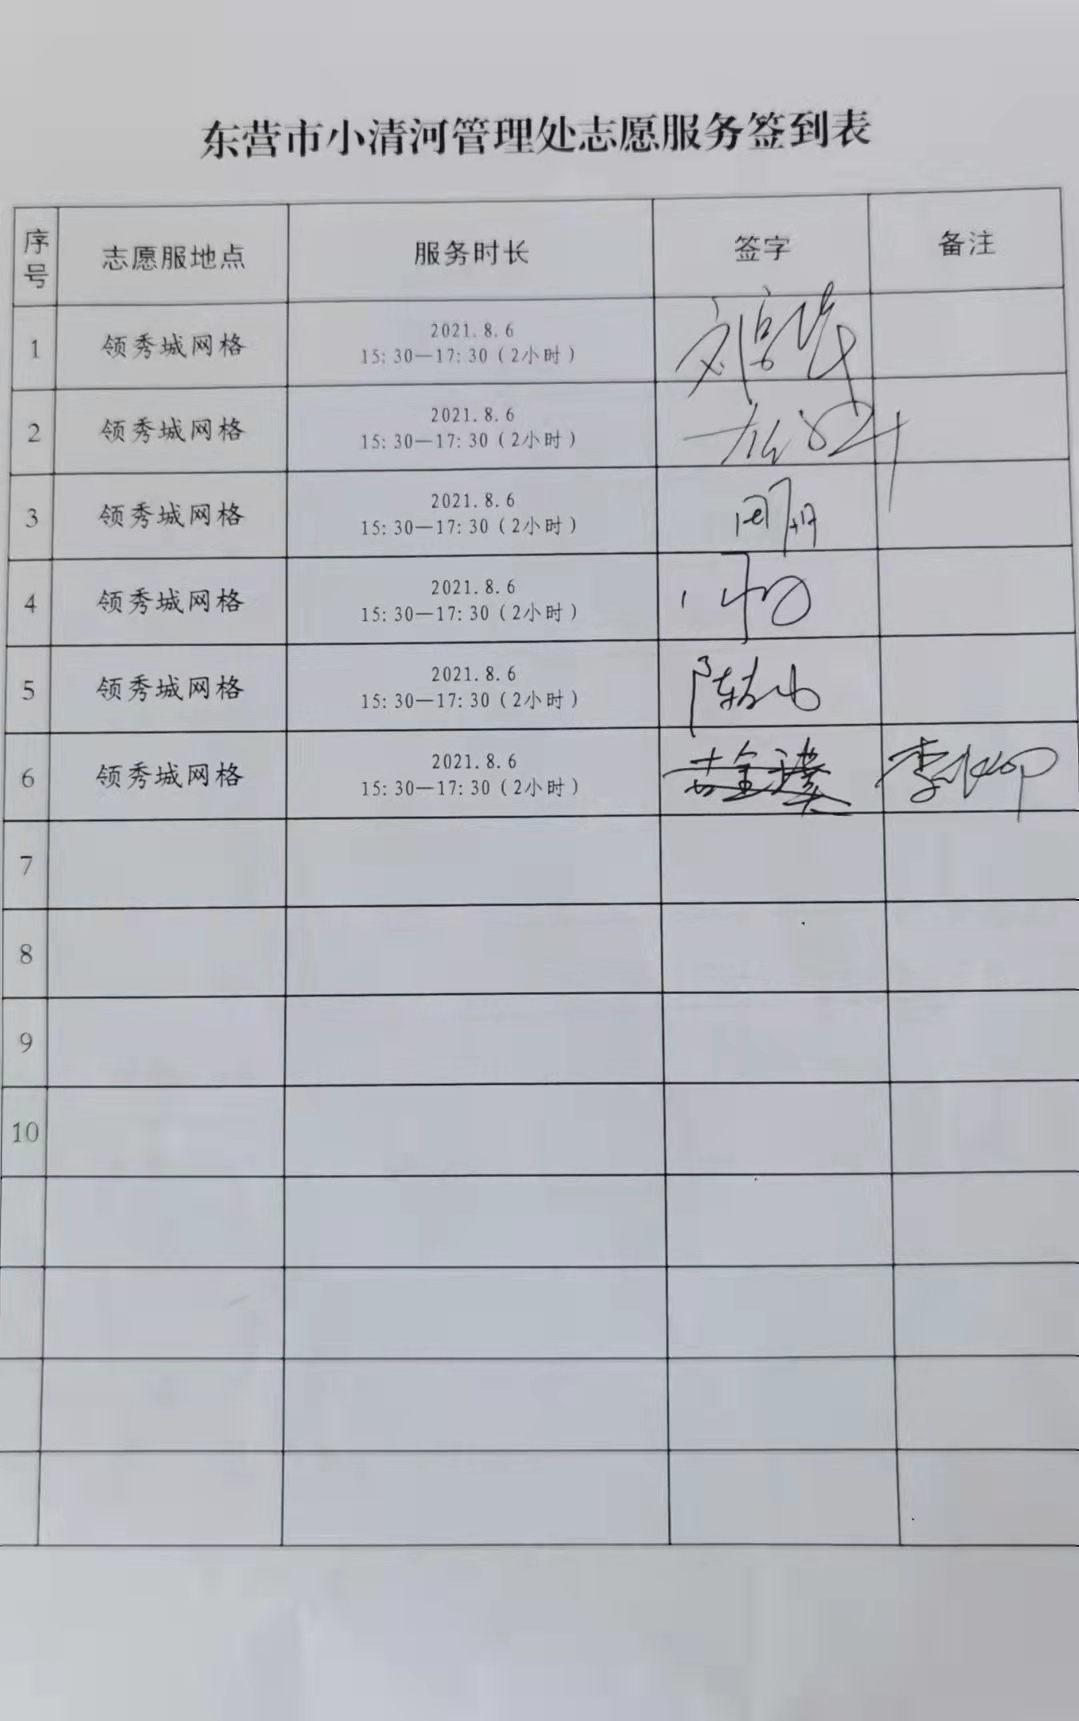 东营市小清河管理处志愿服务签到表
序号 志愿服地点 服务时长 签字 备注
1 领秀城网格 2021.8.6
15:30—17:30（2小时）
2 领秀城网格 2021.8.6
15:30—17:30（2小时）
3 领秀城网格 2021.8.6
15:30—17:30（2小时） 周丹
4 领秀城网格 2021.8.6
15:30—17:30（2小时）
5 领秀城网格 2021.8.6
15:30—17:30（2小时）
6 领秀城网格 2021.8.6
15:30—17:30（2小时）
7
8
9
10